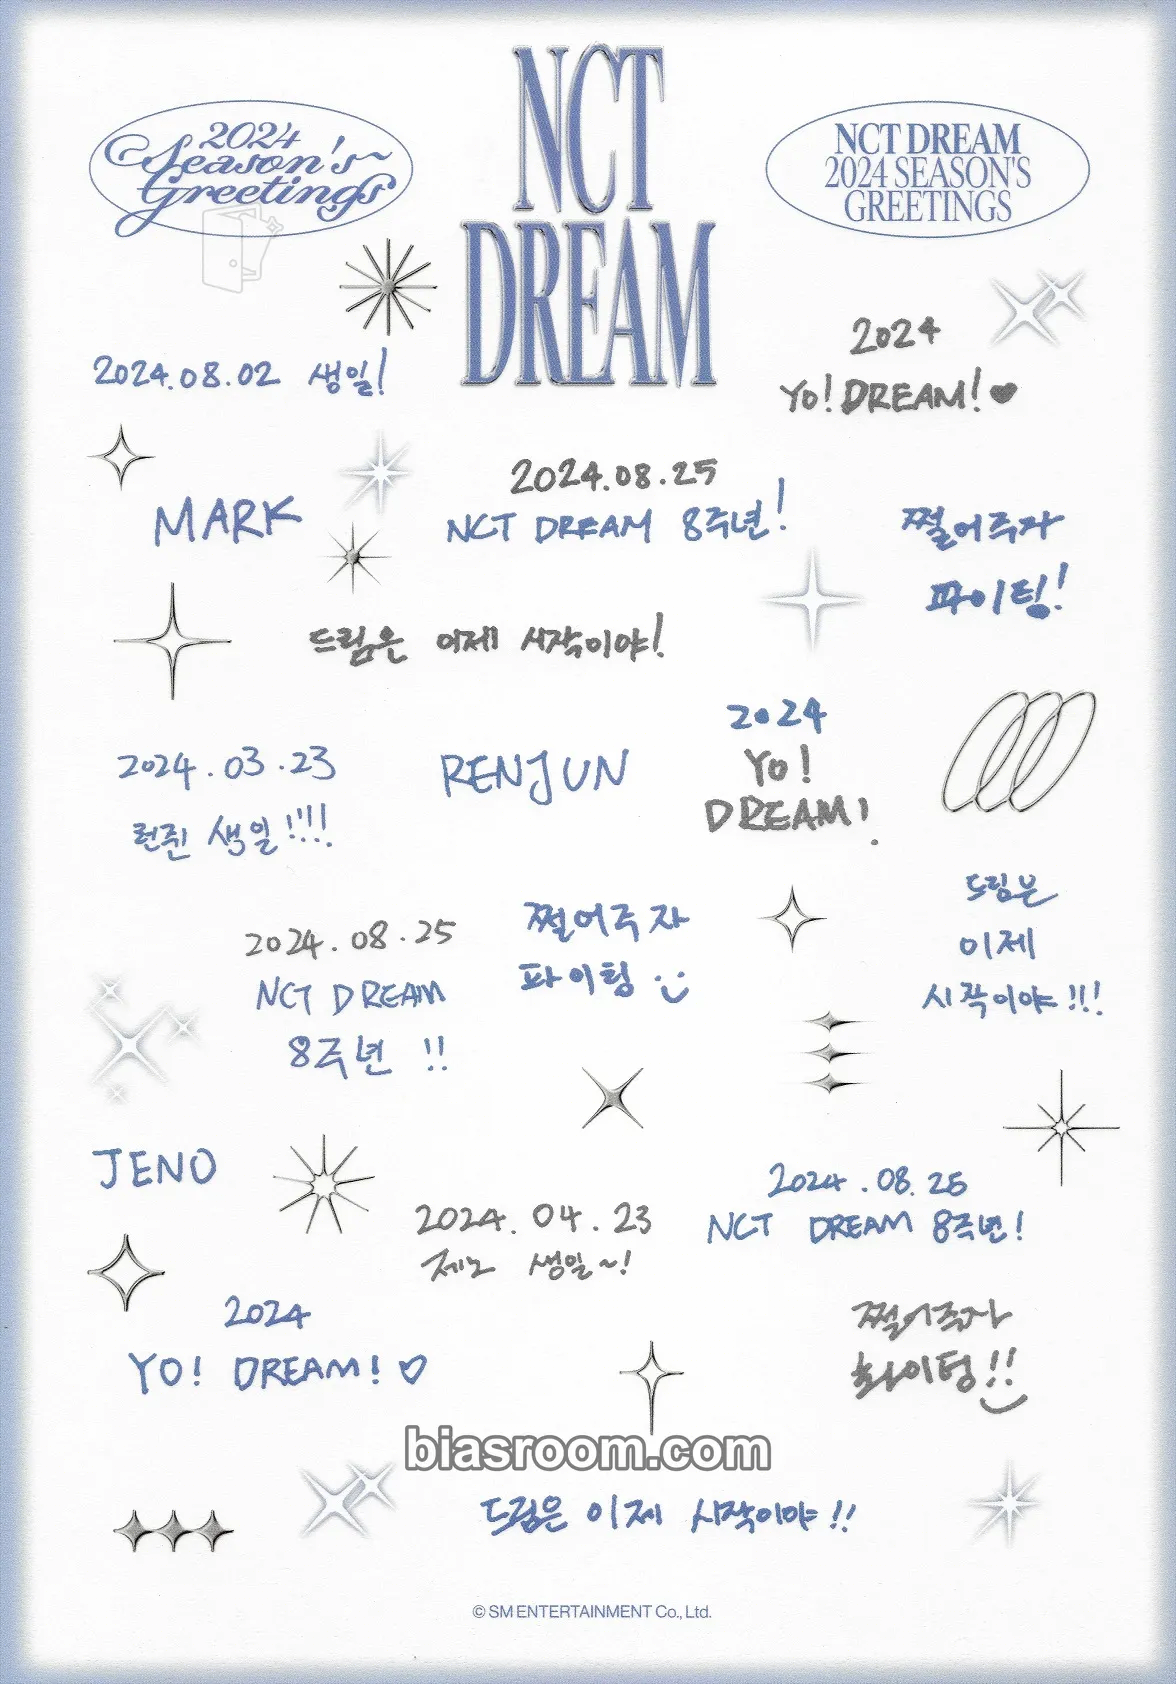 2024
Season's
Greetings
NCT
DREAM
NCT DREAM
2024 SEASON'S
GREETINGS
2024.08.02 생일!
2024
Yo! DREAM!♥
MARK
2024.08.25
NCT DREAM 8주년!
쩔어주자
파이팅!
드림은 이제 시작이야!
2024.03.23
런쥔 생일!!!!
RENJUN
2024
Yo!
DREAM!
2024.08.25
NCT DREAM
8주년 !!
쩔어주자
파이팅
드림은
이제
시작이야!!!
JENO
2024.04.23
제노 생일~!
2024.08.25
NCT DREAM 8주년!
2024
YO! DREAM!♡
쩔어주자
화이팅!!
biasroom.com
드림은 이제 시작이야!!
© SM ENTERTAINMENT Co., Ltd.